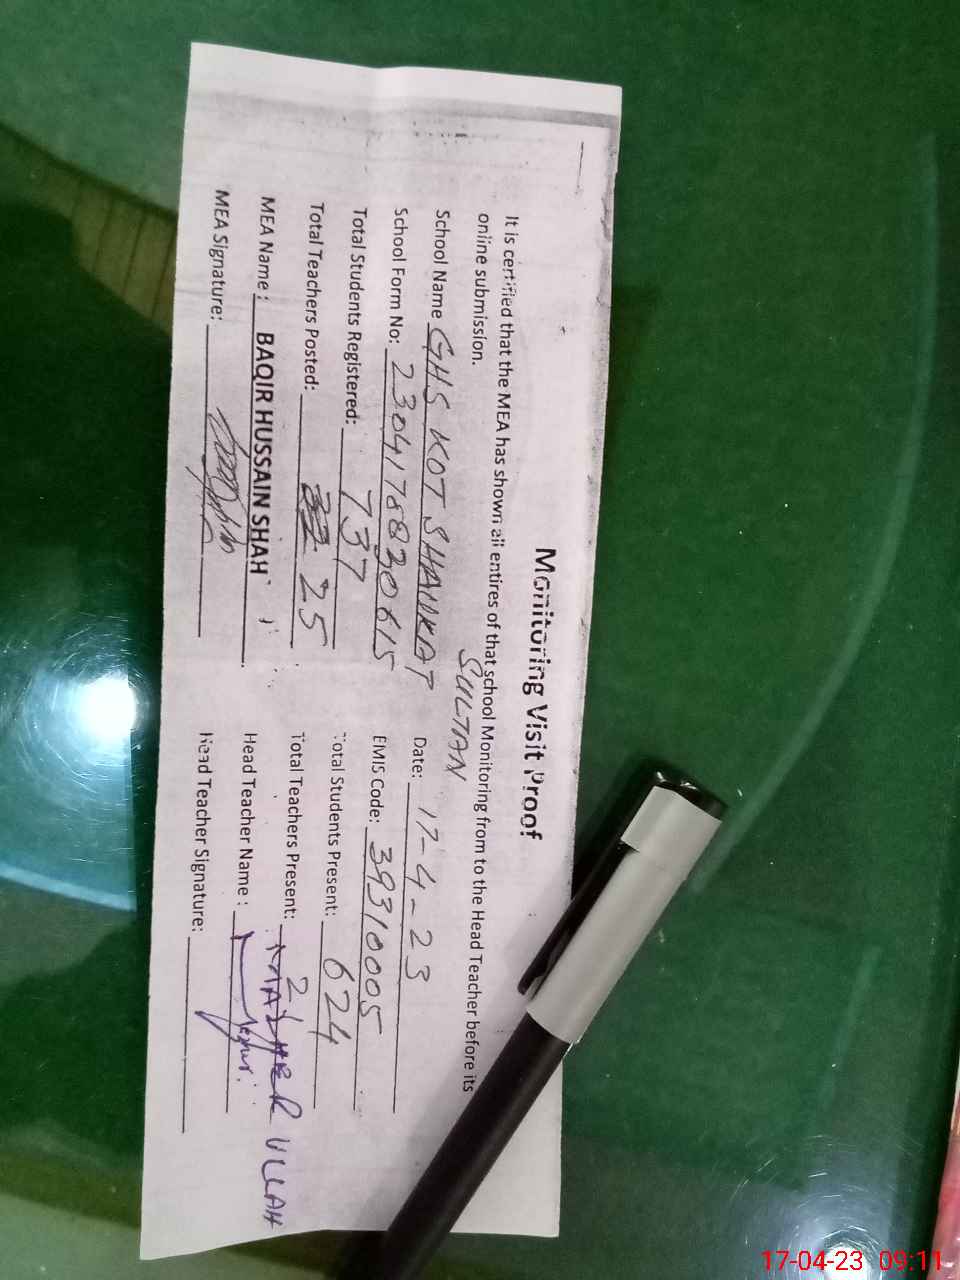 Monitoring Visit Proof
It is certified that the MEA has shown all entires of that school Monitoring from to the Head Teacher before its
online submission.
SULTAN
School Name GHS KOT SHAUKAT Date: 17-4-23
School Form No: 2304178830615 EMIS Code: 39310005
Total Students Registered: 737 Total Students Present: 624
Total Teachers Posted: 25 Total Teachers Present: 21
MEA Name: BAQIR HUSSAIN SHAH Head Teacher Name: MAZHER ULLAH
MEA Signature: Head Teacher Signature:
17-04-23 09:11